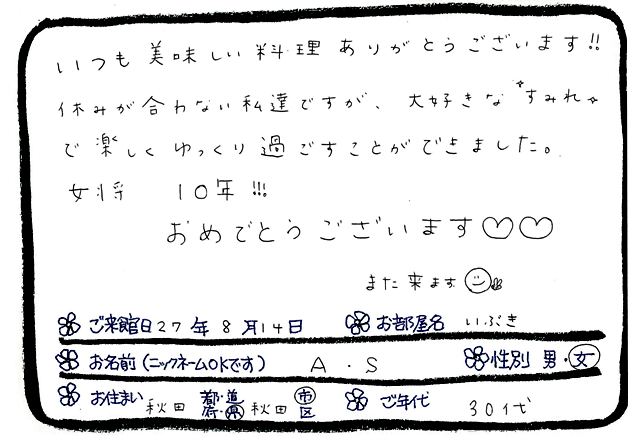 いつも美味しい料理ありがとうございます!!
休みが合わない私達ですが、大好きな"すみれ"
で楽しくゆっくり過ごすことができました。
女将 10年!!!
おめでとうございます♡♡
また来ます
ご来館日27年8月14日 お部屋名 いぶき
お名前(ニックネームOKです) A・S 性別 男・女
お住まい 秋田 都・道 府・県 秋田 市 区 ご年代 30代